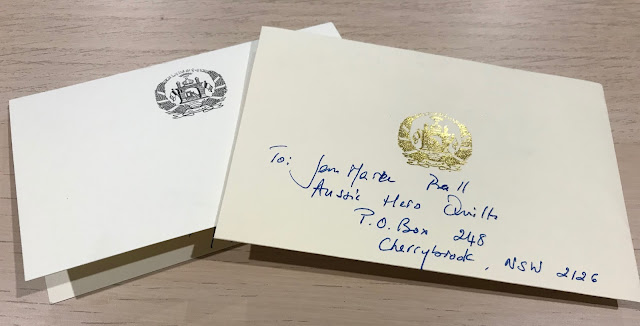 To: Jan Maree Ball
Aussie Hero Quilts
P.O. Box 248
Cherrybrook, NSW 2126